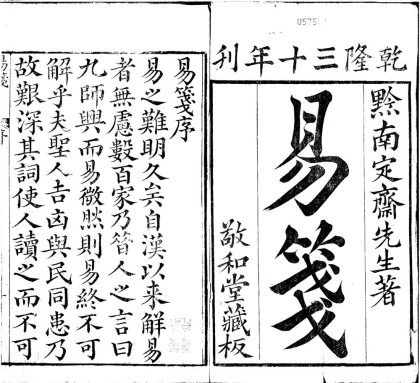 乾隆三十年刊
黔南定齋先生著
易箋
敬和堂藏板
易箋序
易之難明久矣自漢以来解易
者無慮數百家乃昔人之言曰
九師興而易微然則易終不可
解乎夫聖人吉凶與民同患乃
故艱深其詞使人讀之而不可